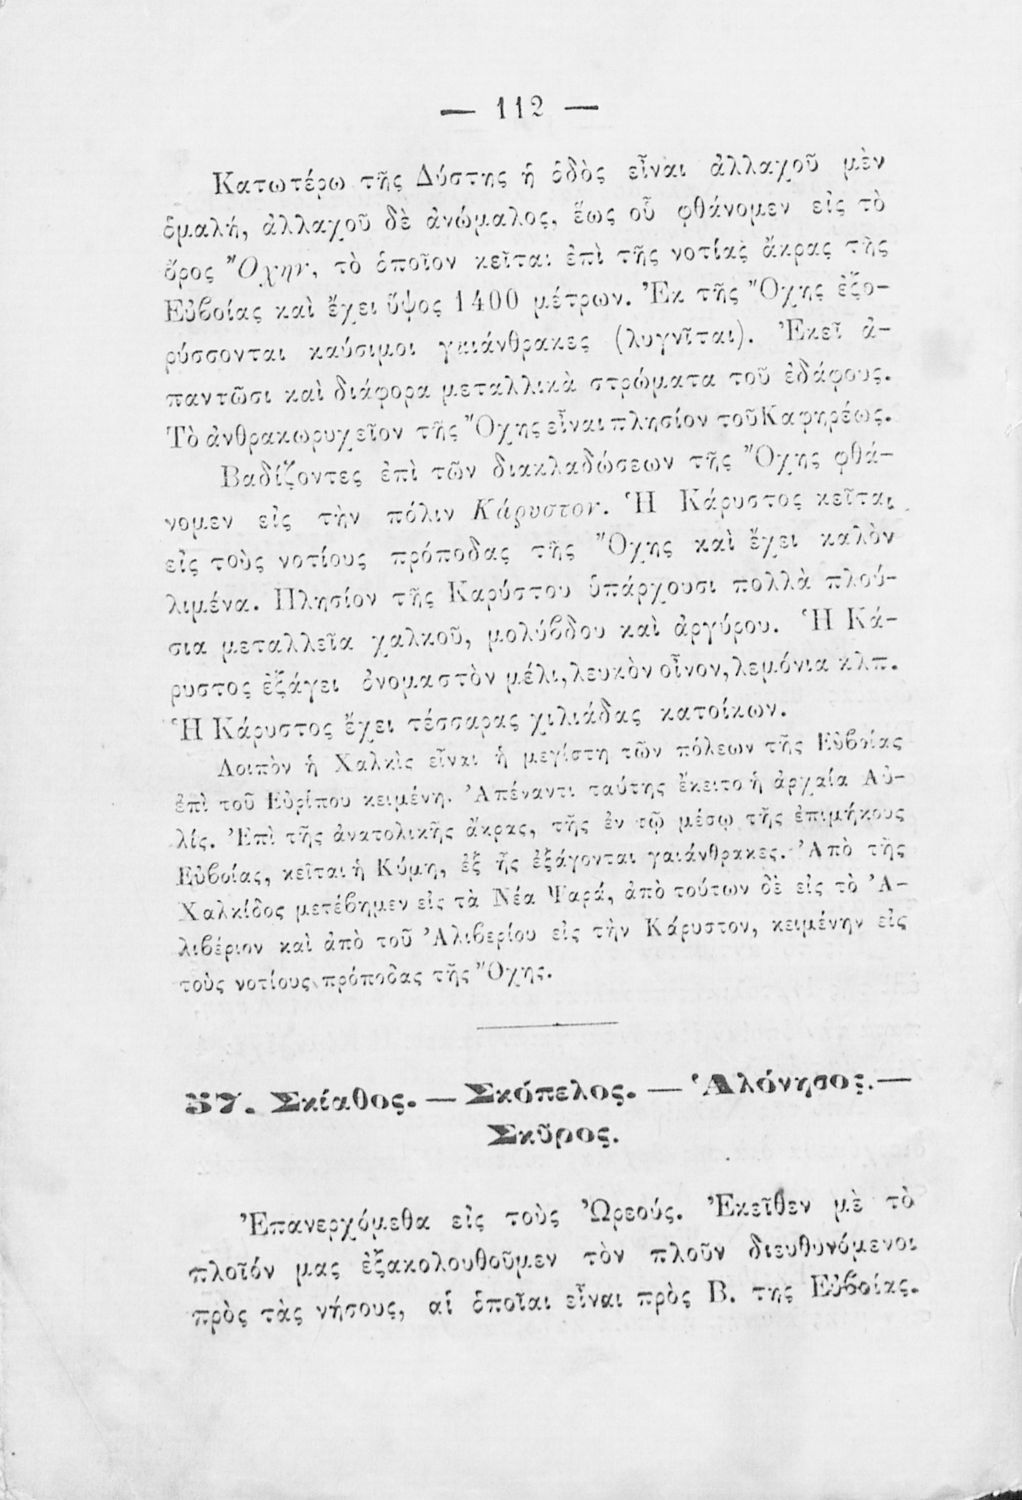 — 112 —
Κατωτέρω τῆς Δύστης ἡ ὁδὸς εἶναι ἀλλαχοῦ μὲν
ὁμαλή, ἀλλαχοῦ δὲ ἀνώμαλος, ἕως οὗ φθάνομεν εἰς τὸ
ὄρος Ὄχην, τὸ ὁποῖον κεῖται ἐπὶ τῆς νοτίας ἄκρας τῆς
Εὐβοίας καὶ ἔχει ὕψος 1400 μέτρων. Ἐκ τῆς Ὄχης ἐξο-
ρύσσονται καύσιμοι γαιάνθρακες (λυγνῖται). Ἐκεῖ ἀ-
παντῶσι καὶ διάφορα μεταλλικὰ στρώματα τοῦ ἐδάφους.
Τὸ ἀνθρακωρυχεῖον τῆς Ὄχης εἶναι πλησίον τοῦ Καφηρέως.
Βαδίζοντες ἐπὶ τῶν διακλαδώσεων τῆς Ὄχης φθά-
νομεν εἰς τὴν πόλιν Κάρυστον. Ἡ Κάρυστος κεῖται
εἰς τοὺς νοτίους πρόποδας τῆς Ὄχης καὶ ἔχει καλὸν
λιμένα. Πλησίον τῆς Καρύστου ὑπάρχουσι πολλὰ πλού-
σια μεταλλεῖα χαλκοῦ, μολύβδου καὶ ἀργύρου. Ἡ Κά-
ρυστος ἐξάγει ὀνομαστὸν μέλι, λευκὸν οἶνον, λεμόνια κλπ.
Ἡ Κάρυστος ἔχει τέσσαρας χιλιάδας κατοίκων.
Λοιπὸν ἡ Χαλκὶς εἶναι ἡ μεγίστη τῶν πόλεων τῆς Εὐβοίας
ἐπὶ τοῦ Εὐρίπου κειμένη. Ἀπέναντι ταύτης ἔκειτο ἡ ἀρχαία Αὐ-
λίς. Ἐπὶ τῆς ἀνατολικῆς ἄκρας, τῆς ἐν τῷ μέσῳ τῆς ἐπιμήκους
Εὐβοίας, κεῖται ἡ Κύμη, ἐξ ἧς ἐξάγονται γαιάνθρακες. Ἀπὸ τῆς
Χαλκίδος μετέβημεν εἰς τὰ Νέα Ψαρά, ἀπὸ τούτων δὲ εἰς τὸ Ἀ-
λιβέριον καὶ ἀπὸ τοῦ Ἀλιβερίου εἰς τὴν Κάρυστον, κειμένην εἰς
τοὺς νοτίους πρόποδας τῆς Ὄχης.
57. Σκίαθος. — Σκόπελος. — Ἁλόνησος. —
Σκῦρος.
Ἐπανερχόμεθα εἰς τοὺς Ὠρεούς. Ἐκεῖθεν μὲ τὸ
πλοῖόν μας ἐξακολουθοῦμεν τὸν πλοῦν διευθυνόμενοι
πρὸς τὰς νήσους, αἱ ὁποῖαι εἶναι πρὸς Β. της Εὐβοίας.